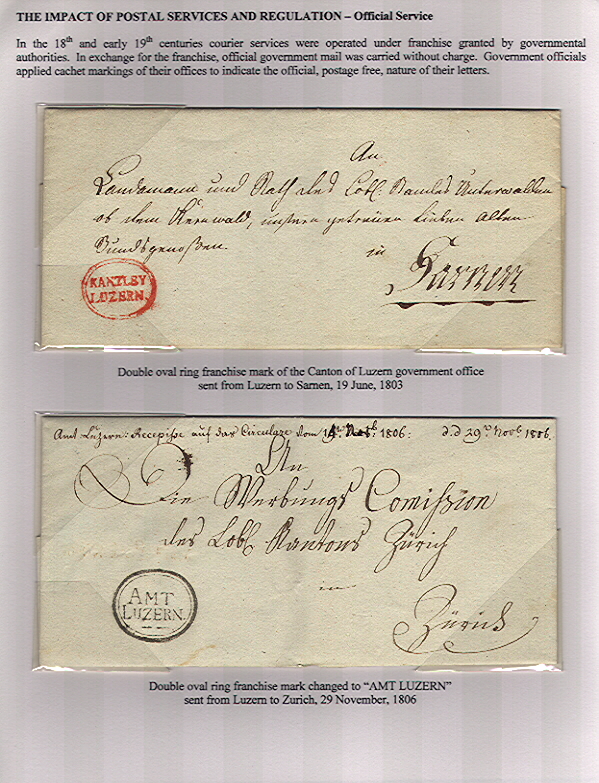 THE IMPACT OF POSTAL SERVICES AND REGULATION – Official Service
In the 18th and early 19th centuries courier services were operated under franchise granted by governmental
authorities. In exchange for the franchise, official government mail was carried without charge. Government officials
applied cachet markings of their offices to indicate the official, postage free, nature of their letters.
An
Landamann und Rath des Lobl. Kantons Unterwalden
ob dem Kernwald, unsern getreüen Lieben Alten
Bundsgenoßen.
in
Sarnen
KANZLEY
LUZERN.
Double oval ring franchise mark of the Canton of Luzern government office
sent from Luzern to Sarnen, 19 June, 1803
Amt Luzern: Recepisse auf das Circulare vom Novb: 1806: d.d 29 Novb 1806.
An
Die Werbungs Comission
des Lobl. Kantons Zürich
in
Zürich
AMT
LUZERN.
Double oval ring franchise mark changed to “AMT LUZERN”
sent from Luzern to Zurich, 29 November, 1806